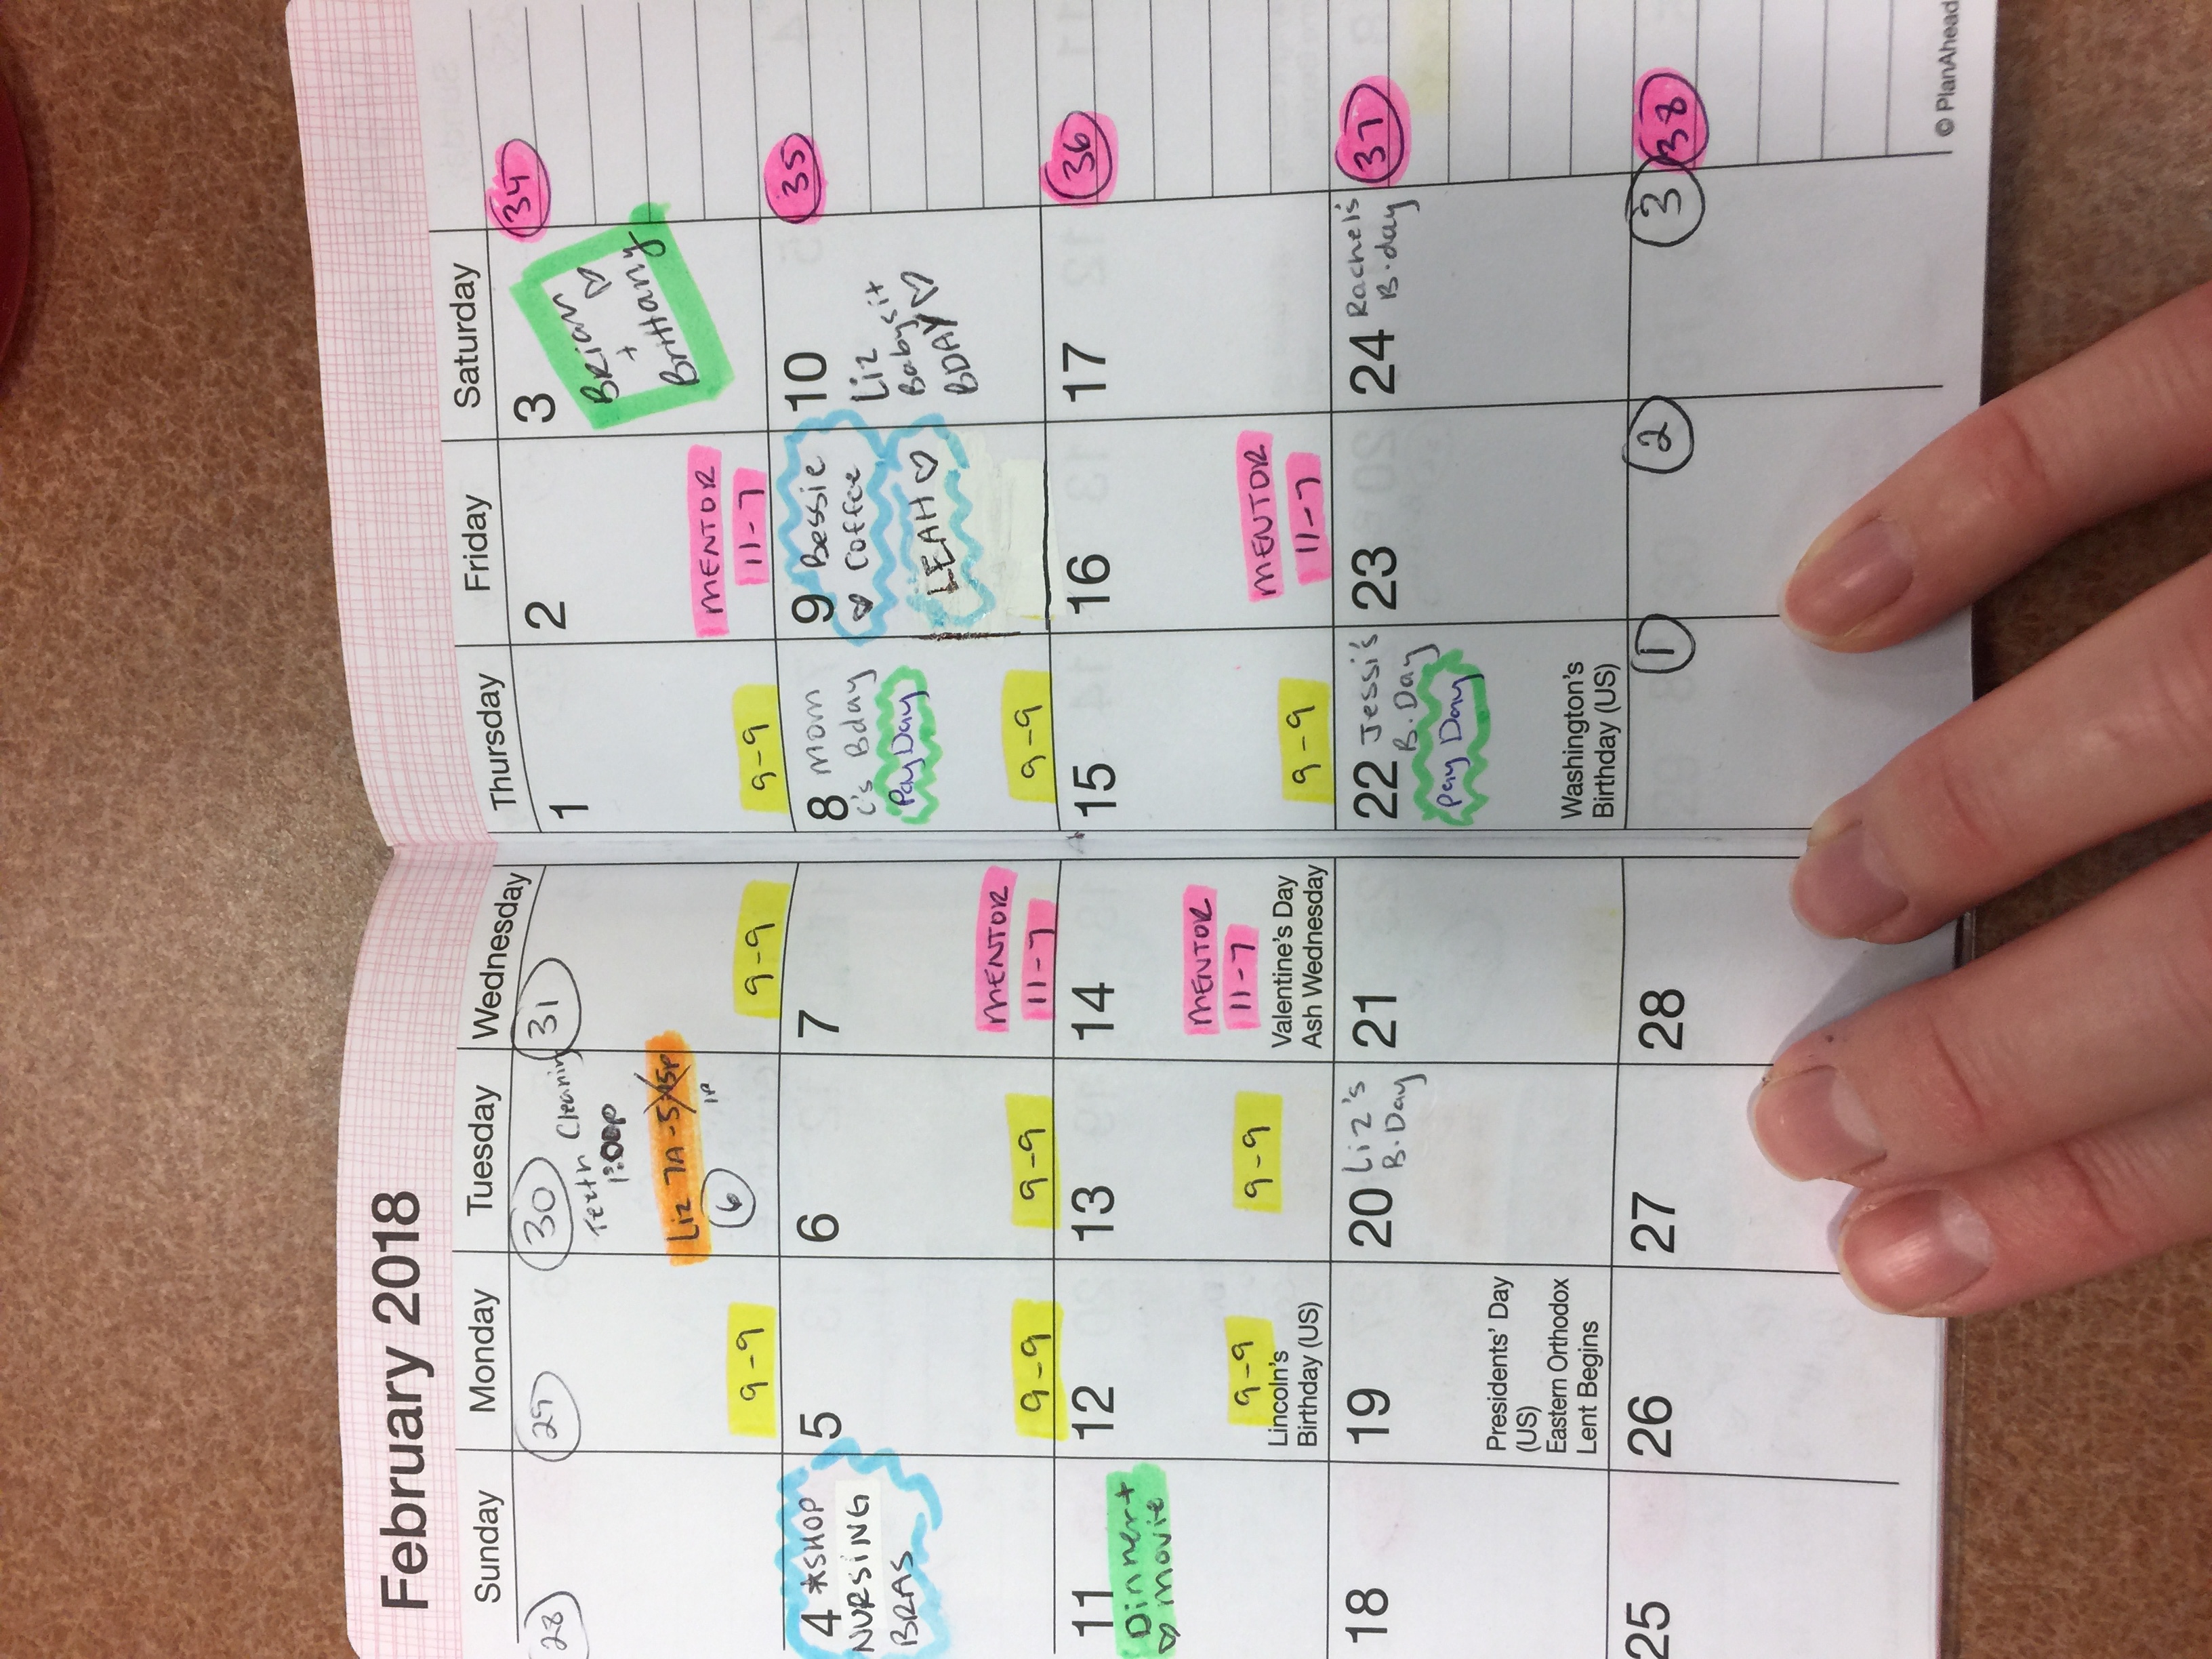 February 2018
Sunday Monday Tuesday Wednesday Thursday Friday Saturday
28
29
9-9
30
Teeth Cleaning
1:00p
Liz 7A-5:45p
1P
6
31
9-9
1
9-9
2
MENTOR
11-7
3
Brian
+
Brittany
34
4 *SHOP
NURSING
BRAS
5
9-9
6
9-9
7
MENTOR
11-7
8 mom
C's Bday
Pay Day
9-9
9 Bessie
Coffee
LEAH
10
Liz
Babysit
BDAY
35
11
Dinner +
movie
12
9-9
Lincoln's
Birthday (US)
13
9-9
14
MENTOR
11-7
Valentine's Day
Ash Wednesday
15
9-9
16
MENTOR
11-7
17
36
18
19
Presidents' Day
(US)
Eastern Orthodox
Lent Begins
20 Liz's
B.Day
21
22 Jessi's
B.Day
Pay Day
Washington's
Birthday (US)
23
24 Rachel's
B.day
37
25
26
27
28
1
2
3
38
© PlanAhead